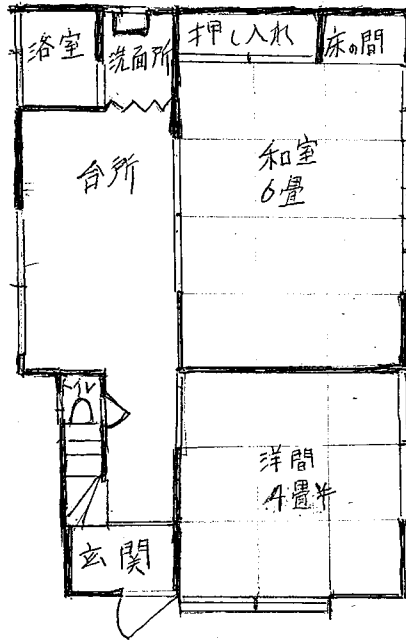 浴室
洗面所
押し入れ
床の間
和室
6畳
台所
トイレ
洋間
4畳半
玄関